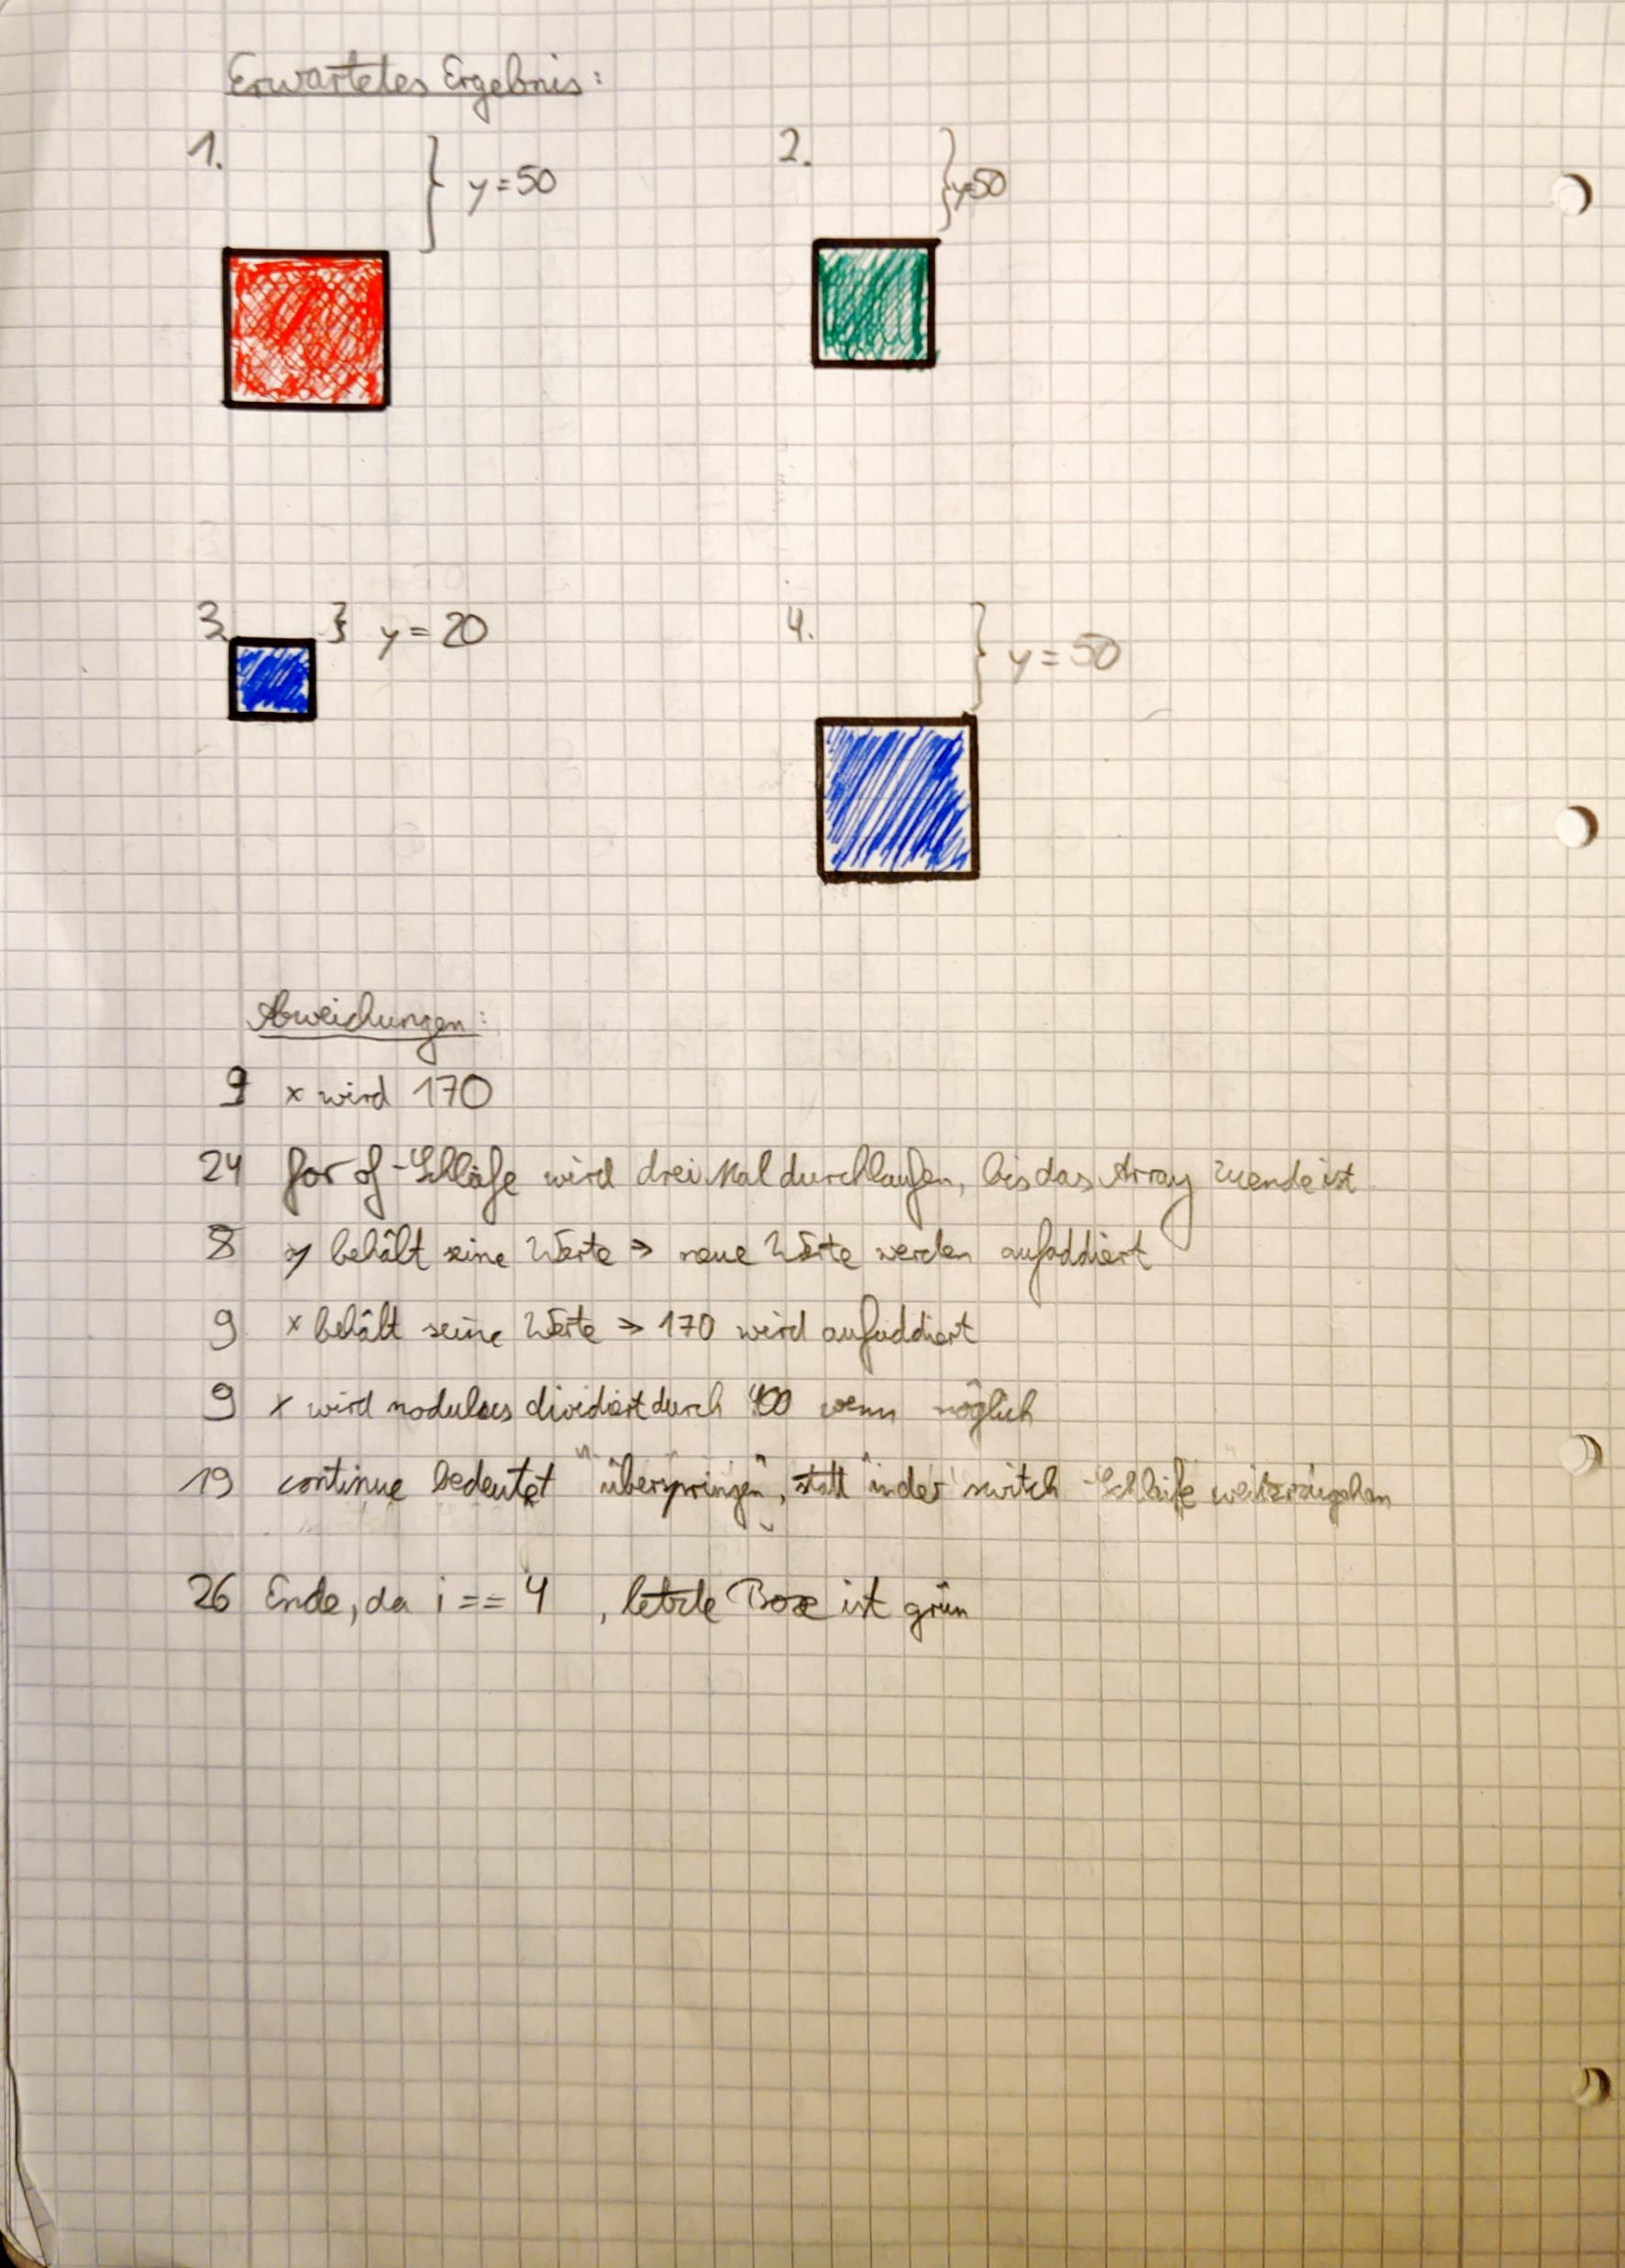 Erwartetes Ergebnis:
1. } y = 50
2. } y=50
3. } y = 20
4. } y = 50
Abweichungen:
9 x wird 170
24 for of - Schleife wird drei Mal durchlaufen, bis das Array zuende ist
8 y behält seine Werte => neue Werte werden aufaddiert
9 x behält seine Werte => 170 wird aufaddiert
9 x wird modulus dividiert durch 400 wenn möglich
19 continue bedeutet "überspringen", statt in der switch - Schleife weiterzugehen
26 Ende, da i == 4 , letzte Box ist grün